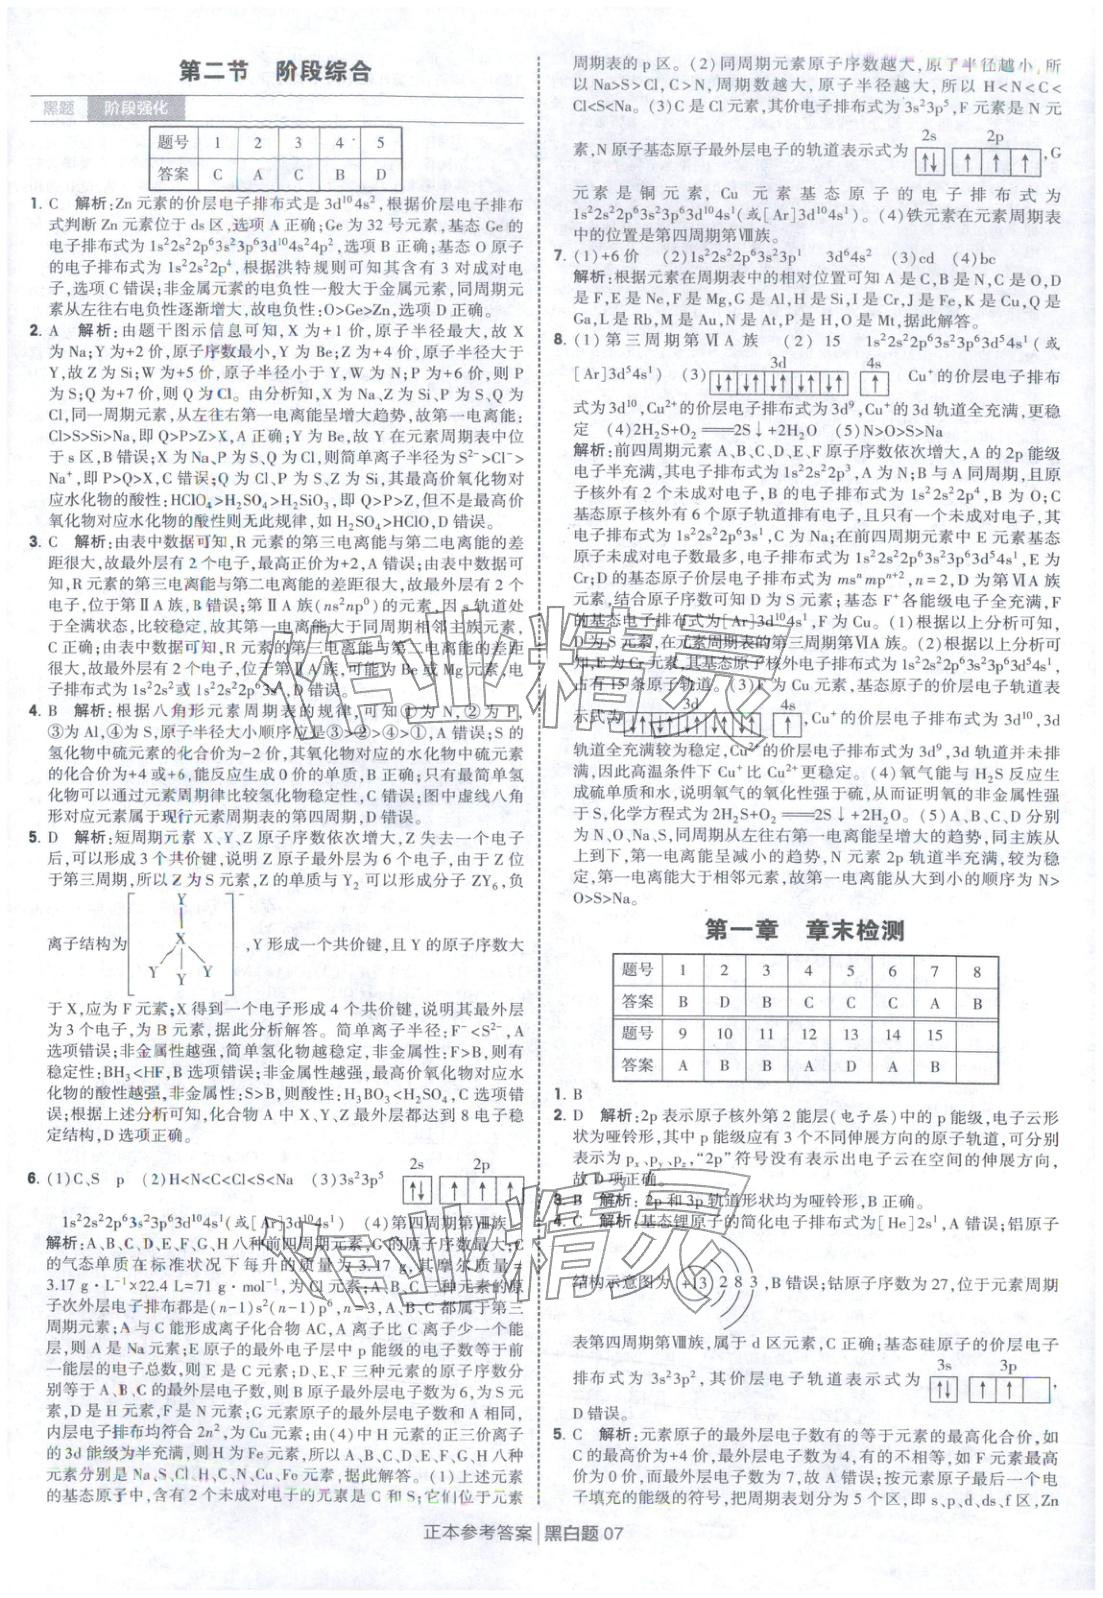 第二节　阶段综合
黑题　阶段强化
题号 1 2 3 4 5
答案 C A C B D
1. C　解析:Zn 元素的价层电子排布式是 3d¹⁰4s²,根据价层电子排布
式判断 Zn 元素位于 ds 区,选项 A 正确;Ge 为 32 号元素,基态 Ge 的
电子排布式为 1s²2s²2p⁶3s²3p⁶3d¹⁰4s²4p²,选项 B 正确;基态 O 原子
的电子排布式为 1s²2s²2p⁴,根据洪特规则可知其含有 3 对成对电
子,选项 C 错误;非金属元素的电负性一般大于金属元素,同周期元
素从左往右电负性逐渐增大,故电负性:O>Ge>Zn,选项 D 正确。
2. A　解析:由题干图示信息可知,X 为+1 价,原子半径最大,故 X
为 Na;Y 为+2 价,原子序数最小,Y 为 Be;Z 为+4 价,原子半径大于
Y,故 Z 为 Si;W 为+5 价,原子半径小于 Y,W 为 N;P 为+6 价,则 P
为 S;Q 为+7 价,则 Q 为 Cl。由分析知,X 为 Na、Z 为 Si、P 为 S、Q 为
Cl,同一周期元素,从左往右第一电离能呈增大趋势,故第一电离能:
Cl>S>Si>Na,即 Q>P>Z>X,A 正确;Y 为 Be,故 Y 在元素周期表中位
于 s 区,B 错误;X 为 Na、P 为 S、Q 为 Cl,则简单离子半径为 S²⁻>Cl⁻>
Na⁺,即 P>Q>X,C 错误;Q 为 Cl、P 为 S、Z 为 Si,其最高价氧化物对
应水化物的酸性:HClO₄>H₂SO₄>H₂SiO₃,即 Q>P>Z,但不是最高价
氧化物对应水化物的酸性则无此规律,如 H₂SO₄>HClO,D 错误。
3. C　解析:由表中数据可知,R 元素的第三电离能与第二电离能的差
距很大,故最外层有 2 个电子,最高正价为+2,A 错误;由表中数据可
知,R 元素的第三电离能与第二电离能的差距很大,故最外层有 2 个
电子,位于第ⅡA 族,B 错误;第ⅡA 族(ns²np⁰)的元素,因 s 轨道处
于全满状态,比较稳定,故其第一电离能大于同周期相邻主族元素,
C 正确;由表中数据可知,R 元素的第三电离能与第二电离能的差
距很大,故最外层有 2 个电子,位于第ⅡA 族,可能为 Be 或 Mg 元素,电
子排布式为 1s²2s²或 1s²2s²2p⁶3s²,D 错误。
4. B　解析:根据八角形元素周期表的规律,可知①为 N,②为 P,
③为 Al,④为 S,原子半径大小顺序应是③>②>④>①,A 错误;S 的
氢化物中硫元素的化合价为-2 价,其氧化物对应的水化物中硫元素
的化合价为+4 或+6,能反应生成 0 价的单质,B 正确;只有最简单氢
化物可以通过元素周期律比较氢化物稳定性,C 错误;图中虚线八角
形对应元素属于现行元素周期表的第四周期,D 错误。
5. D　解析:短周期元素 X、Y、Z 原子序数依次增大,Z 失去一个电子
后,可以形成 3 个共价键,说明 Z 原子最外层为 6 个电子,由于 Z 位
于第三周期,所以 Z 为 S 元素,Z 的单质与 Y₂ 可以形成分子 ZY₆,负
Y
X
离子结构为[Y Y Y]⁻,Y 形成一个共价键,且 Y 的原子序数大
于 X,应为 F 元素;X 得到一个电子形成 4 个共价键,说明其最外层
为 3 个电子,为 B 元素,据此分析解答。简单离子半径:F⁻<S²⁻,A
选项错误;非金属性越强,简单氢化物越稳定,非金属性:F>B,则有
稳定性:BH₃<HF,B 选项错误;非金属性越强,最高价氧化物对应水
化物的酸性越强,非金属性:S>B,则酸性:H₃BO₃<H₂SO₄,C 选项错
误;根据上述分析可知,化合物 A 中 X、Y、Z 最外层都达到 8 电子稳
定结构,D 选项正确。
2s 2p
6. (1)C、S　p　(2)H<N<C<Cl<S<Na　(3)3s²3p⁵　[↑↓] [↑][↑][↑]
1s²2s²2p⁶3s²3p⁶3d¹⁰4s¹(或[Ar]3d¹⁰4s¹)　(4)第四周期第Ⅷ族
解析:A、B、C、D、E、F、G、H 八种前四周期元素,G 的原子序数最大;C
的气态单质在标准状况下每升的质量为 3.17 g,其摩尔质量=
3.17 g·L⁻¹×22.4 L=71 g·mol⁻¹,为 Cl 元素;A、B、C 三种元素的原
子次外层电子排布都是(n-1)s²(n-1)p⁶,n=3,A、B、C 都属于第三
周期元素;A 与 C 能形成离子化合物 AC,A 离子比 C 离子少一个能
层,则 A 是 Na 元素;E 原子的最外层电子层中 p 能级的电子数等于前
一能层的电子总数,则 E 是 C 元素;D、E、F 三种元素的原子序数分
别等于 A、B、C 的最外层电子数,则 B 原子最外层电子数为 6,为 S 元
素,D 为 H 元素,F 为 N 元素;G 元素原子的最外层电子数和 A 相同,
内层电子排布均符合 2n²,为 Cu 元素;由(4)中 H 元素的正三价离子
的 3d 能级为半充满,则 H 为 Fe 元素,所以 A、B、C、D、E、F、G、H 八种
元素分别是 Na、S、Cl、H、C、N、Cu、Fe 元素,据此解答。(1)上述元素
的基态原子中,含有 2 个未成对电子的元素是 C 和 S;它们位于元素
周期表的 p 区。(2)同周期元素原子序数越大,原子半径越小,所
以 Na>S>Cl,C>N,周期数越大,原子半径越大,所以 H<N<C<
Cl<S<Na。(3)C 是 Cl 元素,其价电子排布式为 3s²3p⁵,F 元素是 N 元
2s 2p
素,N 原子基态原子最外层电子的轨道表示式为[↑↓] [↑][↑][↑],G
元素是铜元素,Cu 元素基态原子的电子排布式为
1s²2s²2p⁶3s²3p⁶3d¹⁰4s¹(或[Ar]3d¹⁰4s¹)。(4)铁元素在元素周期表
中的位置是第四周期第Ⅷ族。
7. (1)+6 价　(2)1s²2s²2p⁶3s²3p¹　3d⁶4s²　(3)cd　(4)bc
解析:根据元素在周期表中的相对位置可知 A 是 C,B 是 N,C 是 O,D
是 F,E 是 Ne,F 是 Mg,G 是 Al,H 是 Si,I 是 Cr,J 是 Fe,K 是 Cu,Q 是
Ga,L 是 Rb,M 是 Au,N 是 At,P 是 H,O 是 Mt,据此解答。
8. (1)第三周期第ⅥA 族　(2)15　1s²2s²2p⁶3s²3p⁶3d⁵4s¹(或
3d 4s
[Ar]3d⁵4s¹)　(3)[↑↓][↑↓][↑↓][↑↓][↑↓] [↑]　Cu⁺的价层电子排布
式为 3d¹⁰,Cu²⁺的价层电子排布式为 3d⁹,Cu⁺的 3d 轨道全充满,更稳
定　(4)2H₂S+O₂══2S↓+2H₂O　(5)N>O>S>Na
解析:前四周期元素 A、B、C、D、E、F 原子序数依次增大,A 的 2p 能级
电子半充满,其电子排布式为 1s²2s²2p³,A 为 N;B 与 A 同周期,且原
子核外有 2 个未成对电子,B 的电子排布式为 1s²2s²2p⁴,B 为 O;C
基态原子核外有 6 个原子轨道排有电子,且只有一个未成对电子,其
电子排布式为 1s²2s²2p⁶3s¹,C 为 Na;在前四周期元素中 E 元素基态
原子未成对电子数最多,电子排布式为 1s²2s²2p⁶3s²3p⁶3d⁵4s¹,E 为
Cr;D 的基态原子价层电子排布式为 msⁿmpⁿ⁺²,n=2,D 为第ⅥA 族
元素,结合原子序数可知 D 为 S 元素;基态 F⁺各能级电子全充满,F
的基态电子排布式为[Ar]3d¹⁰4s¹,F 为 Cu。(1)根据以上分析可知,
D 为 S 元素,在元素周期表的第三周期第ⅥA 族。(2)根据以上分析可
知,E 为 Cr 元素,其基态原子核外电子排布式为 1s²2s²2p⁶3s²3p⁶3d⁵4s¹,
占有 15 条原子轨道。(3)F 为 Cu 元素,基态原子的价层电子轨道表
3d 4s
示式为[↑↓][↑↓][↑↓][↑↓][↑↓] [↑],Cu⁺的价层电子排布式为 3d¹⁰,3d
轨道全充满较为稳定,Cu²⁺的价层电子排布式为 3d⁹,3d 轨道并未排
满,因此高温条件下 Cu⁺比 Cu²⁺更稳定。(4)氧气能与 H₂S 反应生
成硫单质和水,说明氧气的氧化性强于硫,从而证明氧的非金属性强
于 S,化学方程式为 2H₂S+O₂══2S↓+2H₂O。(5)A、B、C、D 分别
为 N、O、Na、S,同周期从左往右第一电离能呈增大的趋势,同主族从
上到下,第一电离能呈减小的趋势,N 元素 2p 轨道半充满,较为稳
定,第一电离能大于相邻元素,故第一电离能从大到小的顺序为 N>
O>S>Na。
第一章　章末检测
题号 1 2 3 4 5 6 7 8
答案 B D B C C C A B
题号 9 10 11 12 13 14 15
答案 A B B A D A B
1. B
2. D　解析:2p 表示原子核外第 2 能层(电子层)中的 p 能级,电子云形
状为哑铃形,其中 p 能级应有 3 个不同伸展方向的原子轨道,可分别
表示为 pₓ、p_y、p_z,“2p”符号没有表示出电子云在空间的伸展方向,
故 D 项正确。
3. B　解析:2p 和 3p 轨道形状均为哑铃形,B 正确。
4. C　解析:基态锂原子的简化电子排布式为[He]2s¹,A 错误;铝原子
结构示意图为 +13 2 8 3,B 错误;钴原子序数为 27,位于元素周期
表第四周期第Ⅷ族,属于 d 区元素,C 正确;基态硅原子的价层电子
3s 3p
排布式为 3s²3p²,价层电子轨道表示式为[↑↓] [↑][↑][ ],
D 错误。
5. C　解析:元素原子的最外层电子数有的等于元素的最高化合价,如
C 的最高价为+4 价,最外层电子数为 4,有的不相等,如 F 元素最高
价为 0 价,而最外层电子数为 7,故 A 错误;按元素原子最后一个电
子填充的能级的符号,把周期表划分为 5 个区,即 s、p、d、ds、f 区,Zn
正本参考答案 黑白题 07
作业精灵
作业精灵